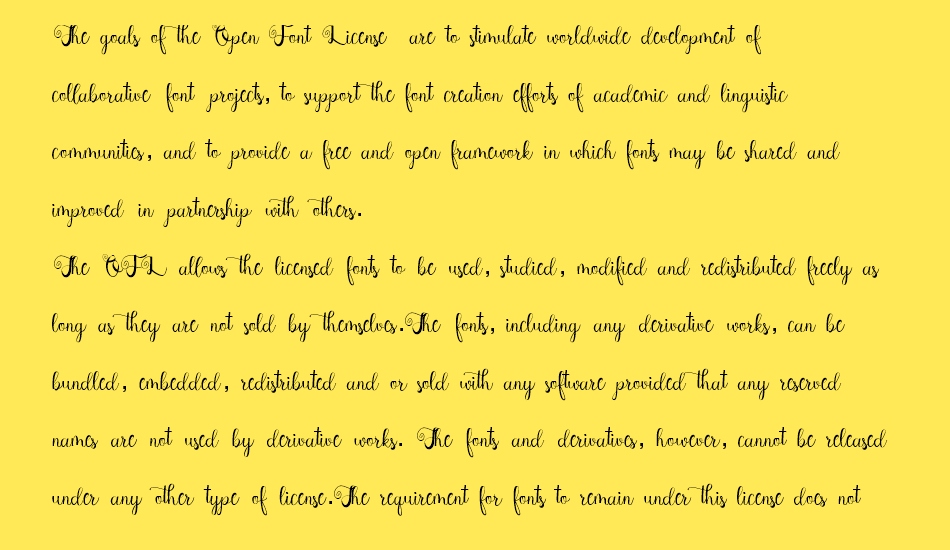 The goals of the Open Font License are to stimulate worldwide development of
collaborative font projects, to support the font creation efforts of academic and linguistic
communities, and to provide a free and open framework in which fonts may be shared and
improved in partnership with others.
The OFL allows the licensed fonts to be used, studied, modified and redistributed freely as
long as they are not sold by themselves.The fonts, including any derivative works, can be
bundled, embedded, redistributed and or sold with any software provided that any reserved
names are not used by derivative works. The fonts and derivatives, however, cannot be released
under any other type of license.The requirement for fonts to remain under this license does not